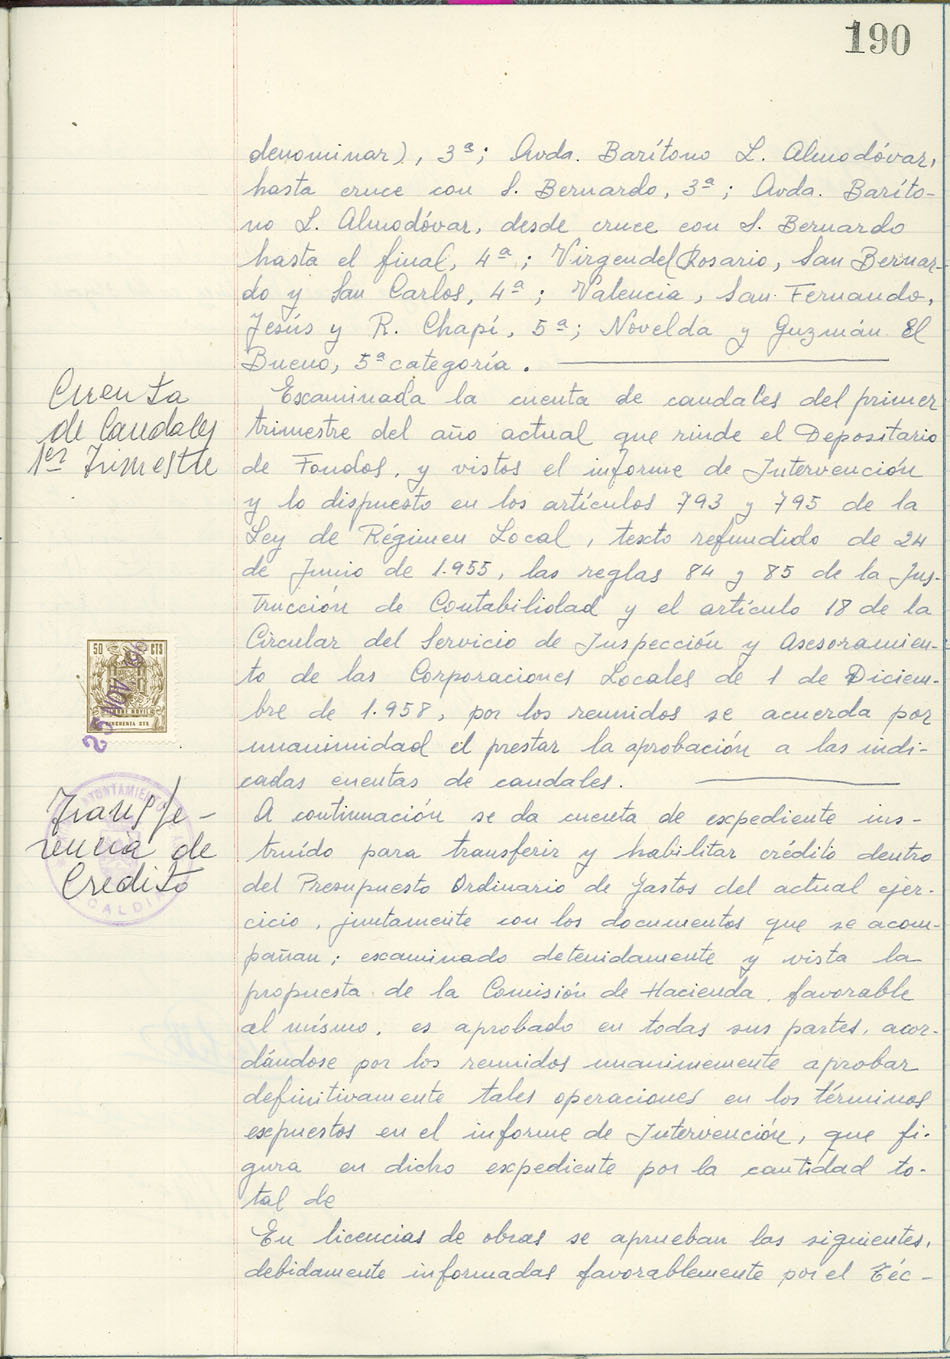 190
denominar), 3ª; Avda. Barítono L. Almodóvar,
hasta cruce con S. Bernardo, 3ª; Avda. Baríto-
no L. Almodóvar, desde cruce con S. Bernardo
hasta el final, 4ª; Virgen del Rosario, San Bernar-
do y San Carlos, 4ª; Valencia, San Fernando,
Jesús y R. Chapí, 5ª; Novelda y Guzmán El
Bueno, 5ª categoría.
Cuenta
de Caudales
1er Trimestre
Examinada la cuenta de caudales del primer
trimestre del año actual que rinde el Depositario
de Fondos, y vistos el informe de Intervención
y lo dispuesto en los artículos 793 y 795 de la
Ley de Régimen Local, texto refundido de 24
de Junio de 1.955, las reglas 84 y 85 de la Ins-
trucción de Contabilidad y el artículo 18 de la
Circular del Servicio de Inspección y Asesoramien-
to de las Corporaciones Locales de 1 de Diciem-
bre de 1.958, por los reunidos se acuerda por
unanimidad el prestar la aprobación a las indi-
cadas cuentas de caudales.
50 CTS
25 NOV
Transfe-
rencia de
Credito
AYUNTAMIENTO
ALCALDIA
A continuación se da cuenta de expediente ins-
truído para transferir y habilitar crédito dentro
del Presupuesto Ordinario de Gastos del actual ejer-
cicio, juntamente con los documentos que se acom-
pañan; examinado detenidamente y vista la
propuesta de la Comisión de Hacienda favorable
al mismo, es aprobado en todas sus partes, acor-
dándose por los reunidos unanimemente aprobar
definitivamente tales operaciones en los términos
expuestos en el informe de Intervención, que fi-
gura en dicho expediente por la cantidad to-
tal de
En licencias de obras se aprueban las siguientes,
debidamente informadas favorablemente por el Téc-